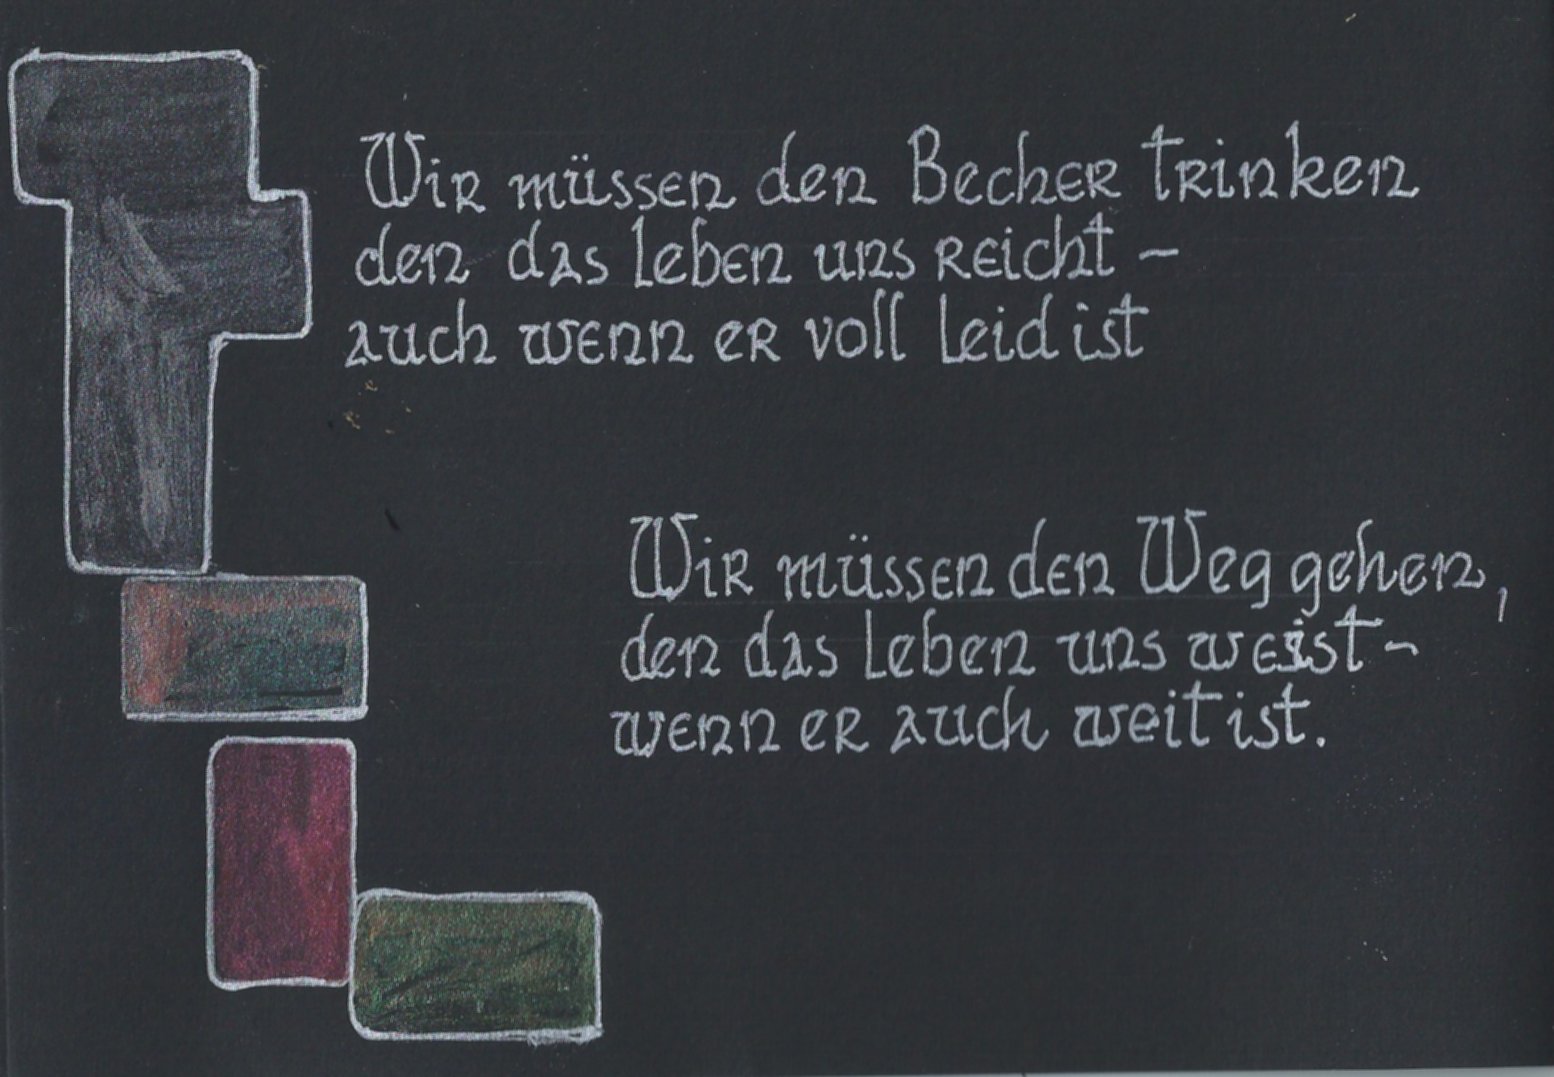 Wir müssen den Becher trinken
den das Leben uns reicht –
auch wenn er voll Leid ist
Wir müssen den Weg gehen,
den das Leben uns weist –
wenn er auch weit ist.